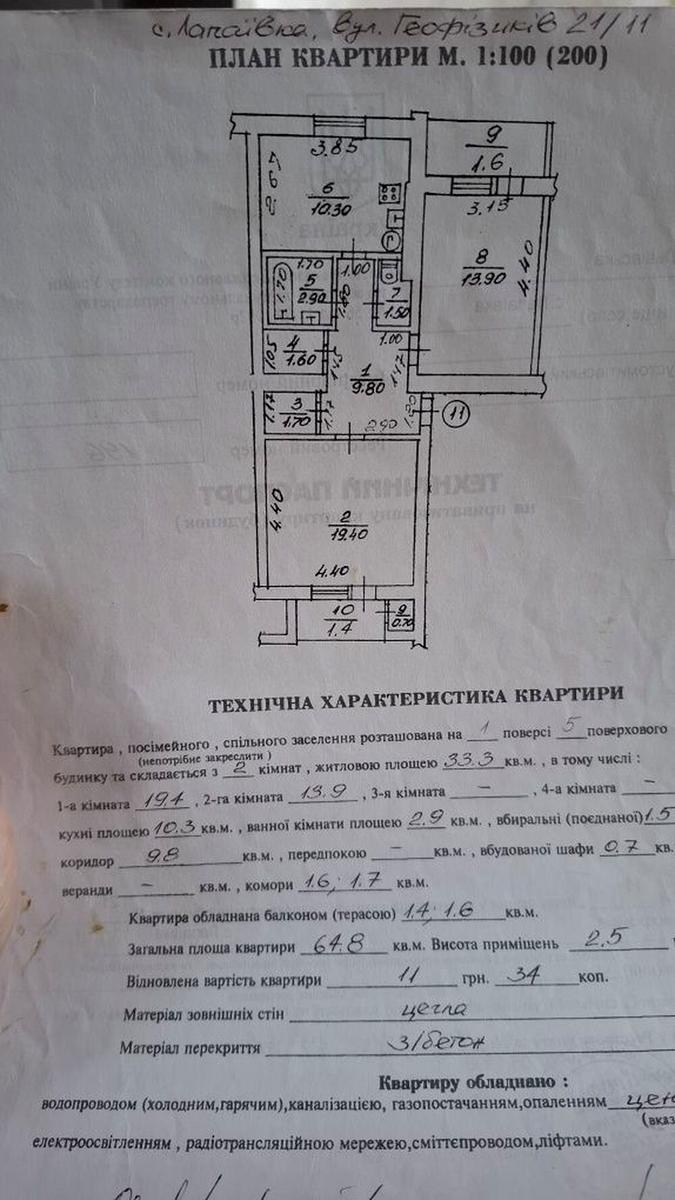 с. Лапаївка, вул. Геофізиків 21/11
ПЛАН КВАРТИРИ М. 1:100 (200)
3.85
2.67
6
10.30
9
1.6
3.15
8
13.90
4.40
1.70
1.70
5
2.90
1.00
1.80
7
1.50
1.05
4
1.60
1.45
1
9.80
1.00
1.47
1.17
3
1.70
1.17
2.90
1.80
11
4.40
2
19.40
4.40
10
1.4
9
0.70
ТЕХНІЧНА ХАРАКТЕРИСТИКА КВАРТИРИ
Квартира , посімейного , спільного заселення розташована на 1 поверсі 5 поверхового
(непотрібне закреслити )
будинку та складається з 2 кімнат , житловою площею 33.3 кв.м. , в тому числі :
1-а кімната 19.4 , 2-га кімната 13.9 , 3-я кімната – , 4-а кімната –
кухні площею 10.3 кв.м. , ванної кімнати площею 2.9 кв.м. , вбиральні (поєднаної) 1.5
коридор 9.8 кв.м. , передпокою – кв.м. , вбудованої шафи 0.7 кв.
веранди – кв.м. , комори 1.6; 1.7 кв.м.
Квартира обладнана балконом (терасою) 1.4; 1.6 кв.м.
Загальна площа квартири 64.8 кв.м. Висота приміщень 2.5
Відновлена вартість квартири 11 грн. 34 коп.
Матеріал зовнішніх стін цегла
Матеріал перекриття з/бетон
Квартиру обладнано :
водопроводом (холодним,гарячим),каналізацією, газопостачанням,опаленням цен
(вказ
електроосвітленням , радіотрансляційною мережею,сміттєпроводом,ліфтами.